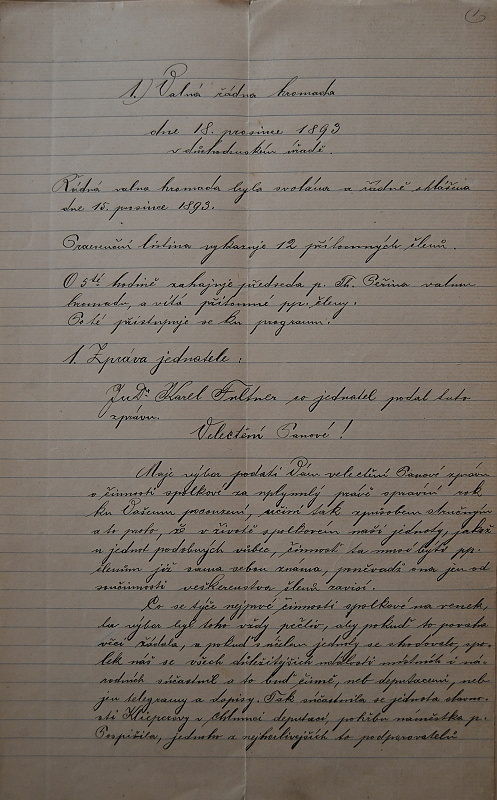 1
1.) Valná řádna hromada
dne 18. prosince 1893
v důchodenském úřadě.
Řádná valna hromada byla svolána a řádně ohlášena
dne 15. prosince 1893.
Praesenční listina vykazuje 12 přítomných členů.
O 5té hodině zahajuje předseda p. Th. Peřina valnou
hromadu, a vítá přítomné pp. členy.
Poté přistupuje se ku programu.
1. Zpráva jednatele:
JuDr Karel Fultner co jednatel podal tuto
zprávu.
Velectění Panové!
Maje výbor podati Vám velectění Panové zprávu
o činnosti spolkové za uplynulý právě správní rok
ku Vašemu posouzení, učiní tak způsobem stručným
a to proto, že v životě spolkovém naší jednoty, jakož
u jednot podobných vůbec, činnosť ta musí býti pp.
členům již sama sebou známa, poněvadž ona jen od
součinnosti veškerenstva členů závisí.
Co se týče nejprvé činnosti spolkové na venek,
tu výbor byl toho vždy pečliv, aby pokud to povaha
věci žádala, a pokud s účelem jednoty se shodovalo, spo-
lek náš se všech důležitějších událostí místních i ná-
rodních súčastnil a to buď čině, neb deputacemi, neb
jen telegramy a dopisy. Tak súčastnila se jednota slavno-
sti Klicperovy v Chlumci deputací, pohřbu náměstka p.
Pospíšila, jednoho z nejhorlivějších to podporovatelů